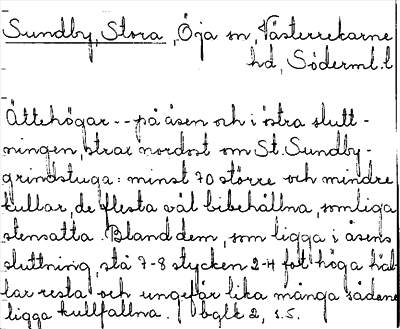 Sundby, Stora, Öja sn, Västerrekarne
hd, Söderml.l
Ättehögar -- på åsen och i östra slutt-
ningen, strax nordost om St. Sundby-
grindstuga: minst 70 större och mindre
kullar, de flesta väl bibehållna, somliga
stensatta. Bland dem, som ligga i åsens
sluttning, stå 7-8 stycken 2-4 fot höga häl-
lar resta och ungefär lika många sådana
ligga kullfallna. bglk 2, s.5.